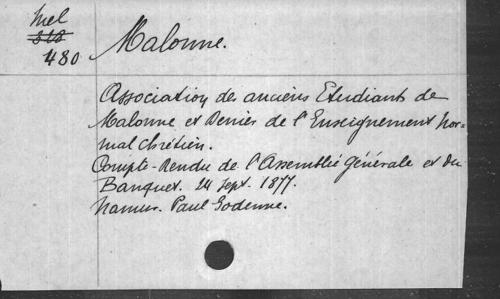 Mel
318
480
Malonne.
Association des anciens Etudiants de
Malonne et Denier de l'Enseignement Nor-
mal chrétien.
Compte-rendu de l'Assemblée Générale et du
Banquet. 24 Sept. 1877.
Namur. Paul Godenne.